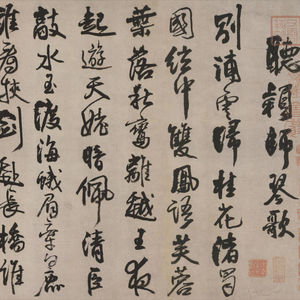 聽穎師琴歌
別浦雲歸桂花渚蜀
國絃中雙鳳語芙蓉
葉落秋鸞離越王夜
起遊天姥暗佩清臣
敲水玉渡海蛾眉牽白鹿
誰看挾劍赴長橋誰